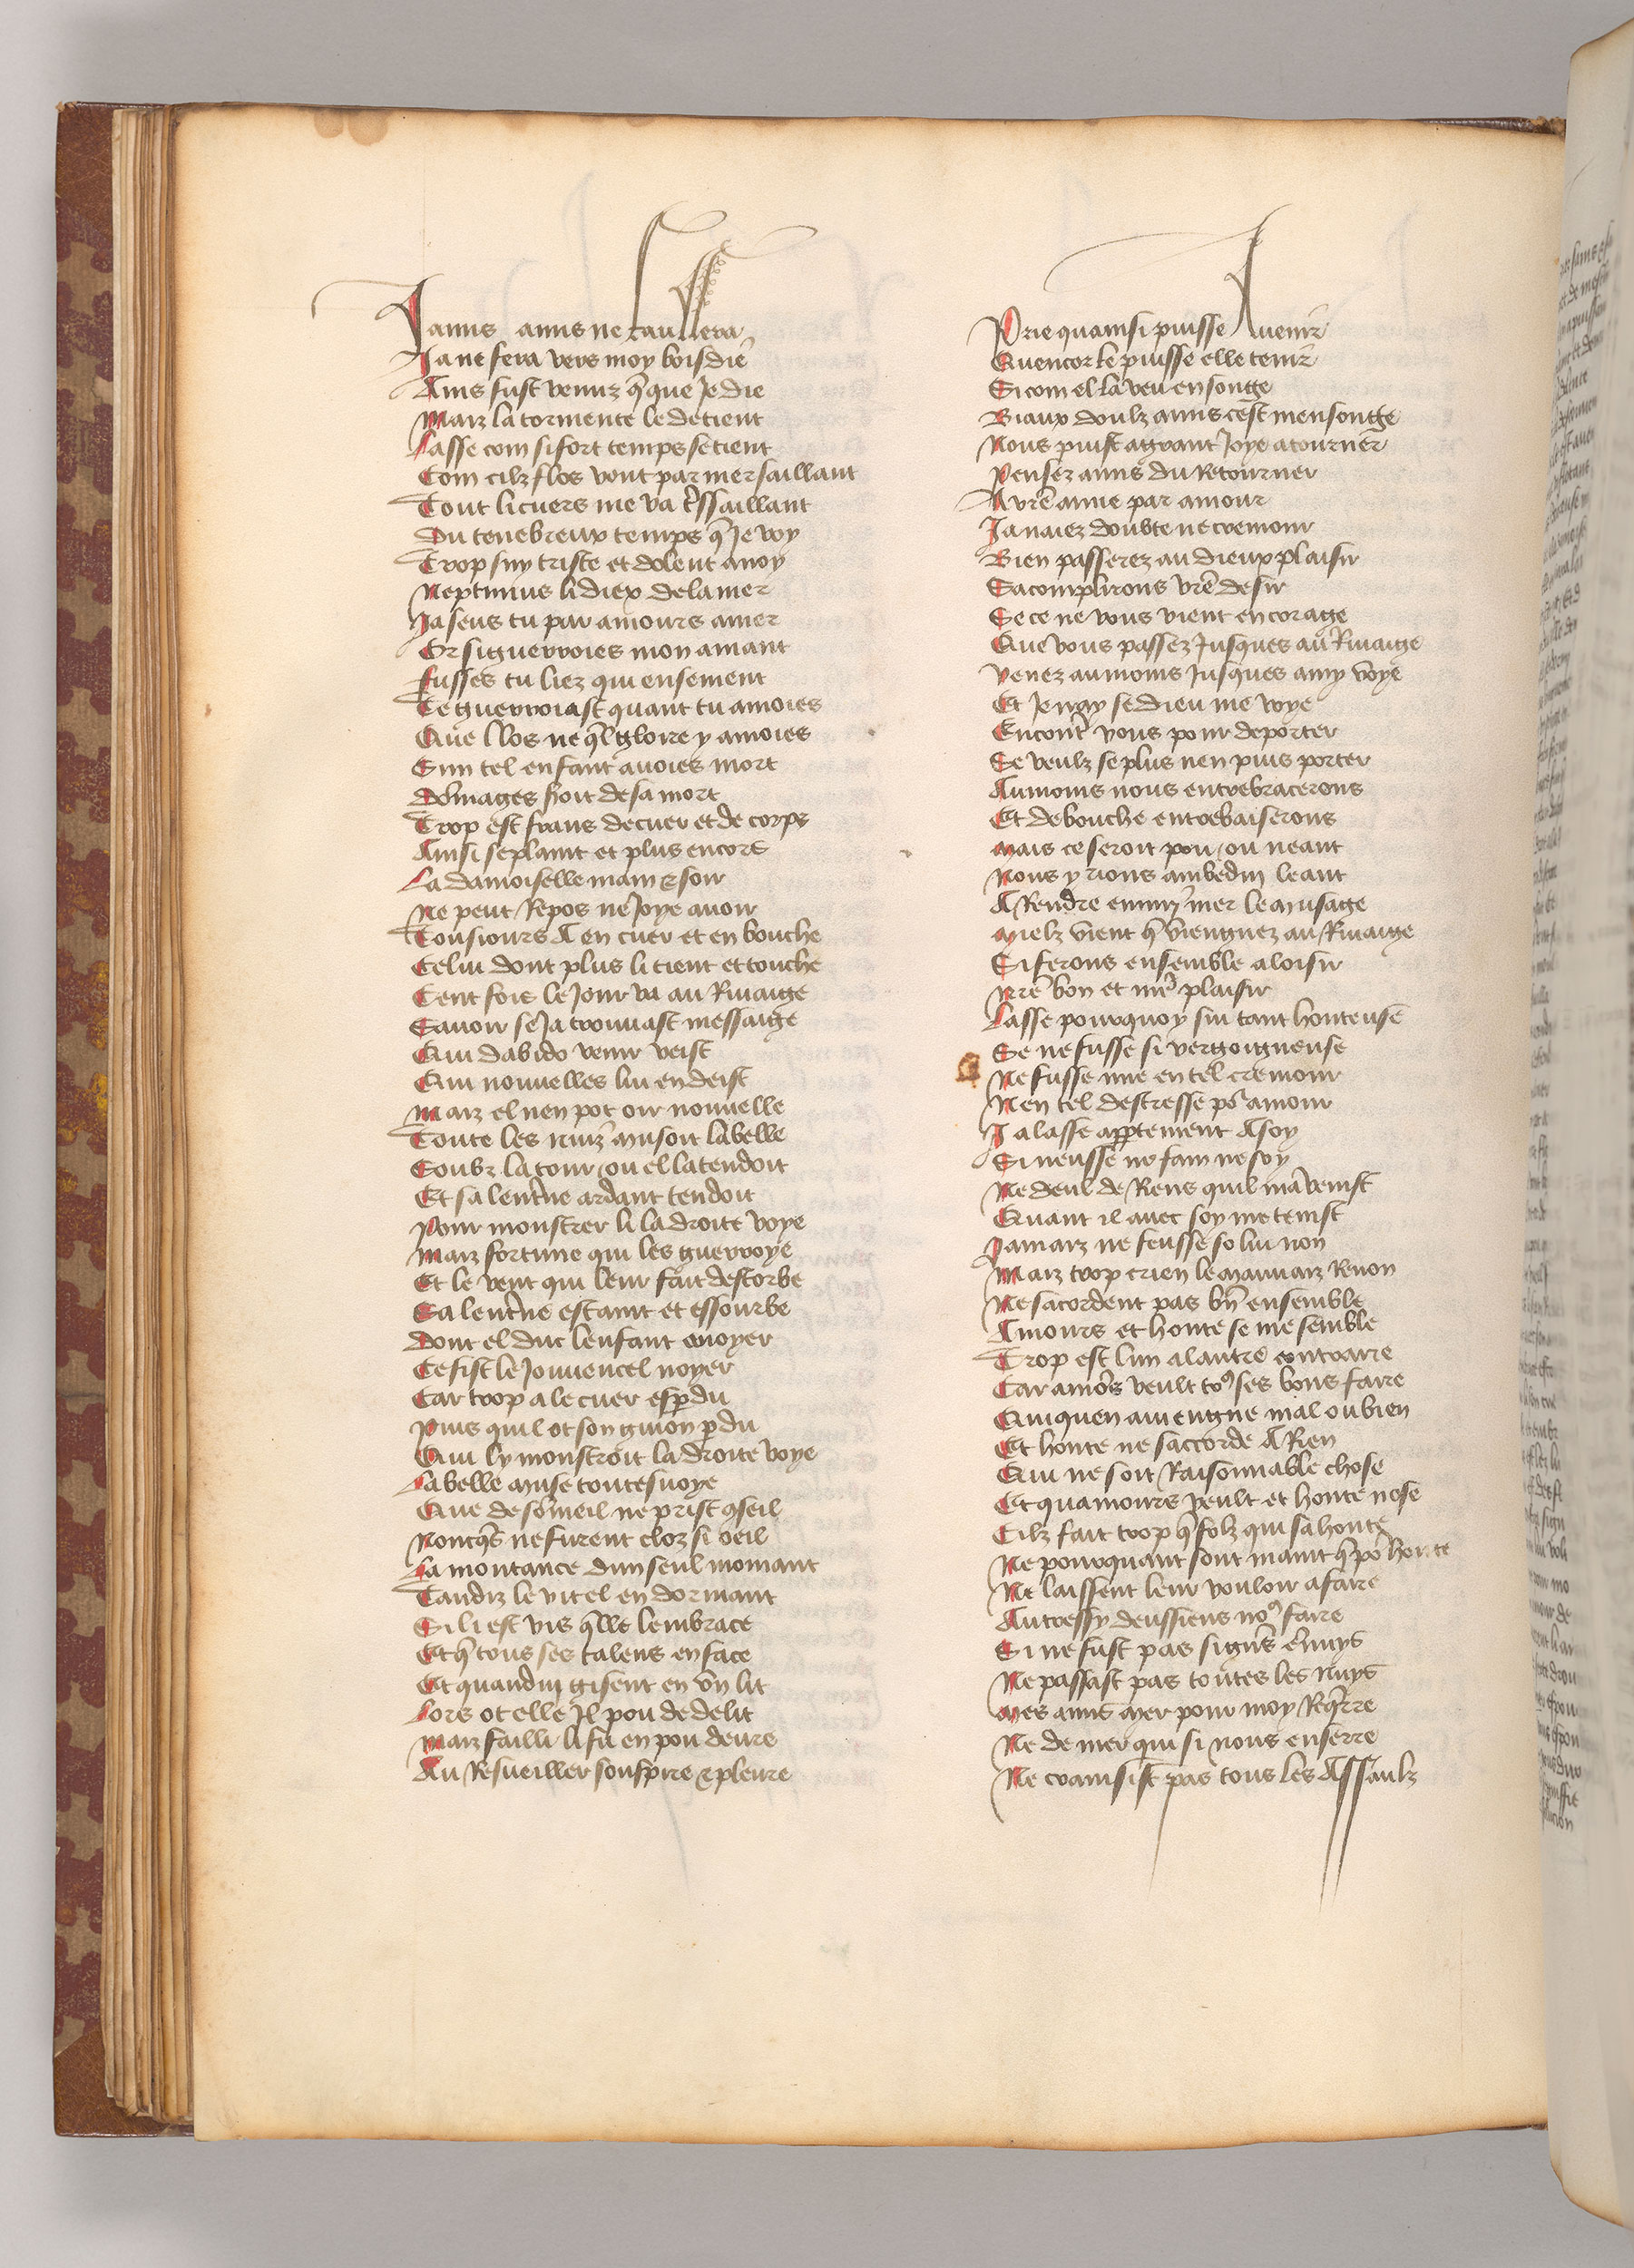 Jamis amis ne faussera
Ja ne fera vers moy boisdie
Ains fust venuz q̄ que Je die
Maiz la tormente le detient
Lasse com si fort temps se tient
Com cilz flos vont par mer saillant
Tout li cuers me va t̃ssaillant
Du tenebreux temps q̄ Je voy
Trop suy triste et dolent a moy
Neptunus li diex de la mer
Ja seus tu par amours amer
Or si guerroies mon amant
Fusses tu liez qui ensement
Te guerroiast quant tu amoies
Que llos ne q̄l gloire y amoies
Sun tel enfant auoies mort
dōmages soit de sa mort
Trop est frans de cuer et de corps
Ainsi se plaint et plus encore
La damoiselle main & soir
Ne peut Repos ne Joye auoir
Tousiours A en cuer et en bouche
Celui dont plus li tient et touche
Cent fois le Jour va au Riuaige
Sauoir se Ja trouuast messaige
Qui dabido venir veist
Qui nouuelles lui en deist
Maiz el nen pot oir nouuelle
Toute les nuiz musoit la belle
Soubz la tour ou el latendoit
Et sa lent̃ne ardant tendoit
Pour monstrer li la droite voye
Maiz fortune qui les guerroye
Et le vent qui leur fait destorbe
Sa lent̃ne estaint et essourbe
Dont el duit lenfant auoyer
Ce fist le Jouuencel noyer
Car trop a le cuer esp̱du
Puis quil ot son guion p̱du
Qui ly monstroit la droite voye
La belle muse toutesuoye
Que de sōmeil ne prist ꝯseil
Nonq̄s ne furent cloz si oeil
La montance dun seul momant
Tandiz le vit el en dormant
Si li est vis q̄lle lembrace
Et q̄ tous ses talens en face
Et quandui gisent en vn lit
Lors ot elle Il pou de delit
Maiz failli li fu en pou deure
Au Resueiller souspire & pleure
Prie quainsi puisse Auenir
Quencor le puisse elle tenir
Si com el la veu en songe
Biaux doulz amis cest mensonge
Nous puist a grant Joye atourner
Pensez amis du Retourner
A vr̄e amie par amour
Ja naiez doubte ne cremour
Bien passerez au dieux plaisir
Sacomplirons vr̄e desir
Se ce ne vous vient en corage
Que vous passez Jusques au Riuaige
Venez au moins Jusques a my voye
Et Je nay se dieu me voye
Encont̃ vous pour deporter
Se veulz se plus nen puis porter
Au moins nous entrebracerons
Et de bouche entrebaiserons
Mais ce seroit pou ou neant
Nous y rions ambedui leant
A Rendre enmy mer le musage
Mielz vient q̄ viengnez au Riuaige
Si ferons ensemble a loisir
Nr̄e bon et nr̄e plaisir
Lasse pourquoy sui tant honteuse
Se ne fusse si vergoigneuse
Ne fusse mie en tel cremour
Nen tel destresse po᷑ amour
J alasse ap̱ptement A soy
Si neusse ne fain ne soy
Ne deul de Riens quil mauenist
Quant il auec soy me tenist
Jamaiz ne feusse so lui non
Maiz trop crien le mauuaiz Renon
Ne sacordent pas bn̄ ensemble
Amours et honte se me semble
Trop est lun a lautre contraire
Car amo᷑s veult to᷒ ses bons faire
Quiquen auiengne mal ou bien
Et honte ne saccorde A Rien
Qui ne soit Raisonnable chose
Et quamours veult et honte nose
Cilz fait trop q̄ folz qui sahonte
Ne pourquant sont maint q̄ po᷑ honte
Ne laissent leur vouloir a faire
Autressy deussiens no᷒ faire
Ne passast pas toutes les nuys
Mes amis mer pour moy Req̄rre
Ne de mer qui si nous enserre
Ne crainsist pas tous les Assaulz